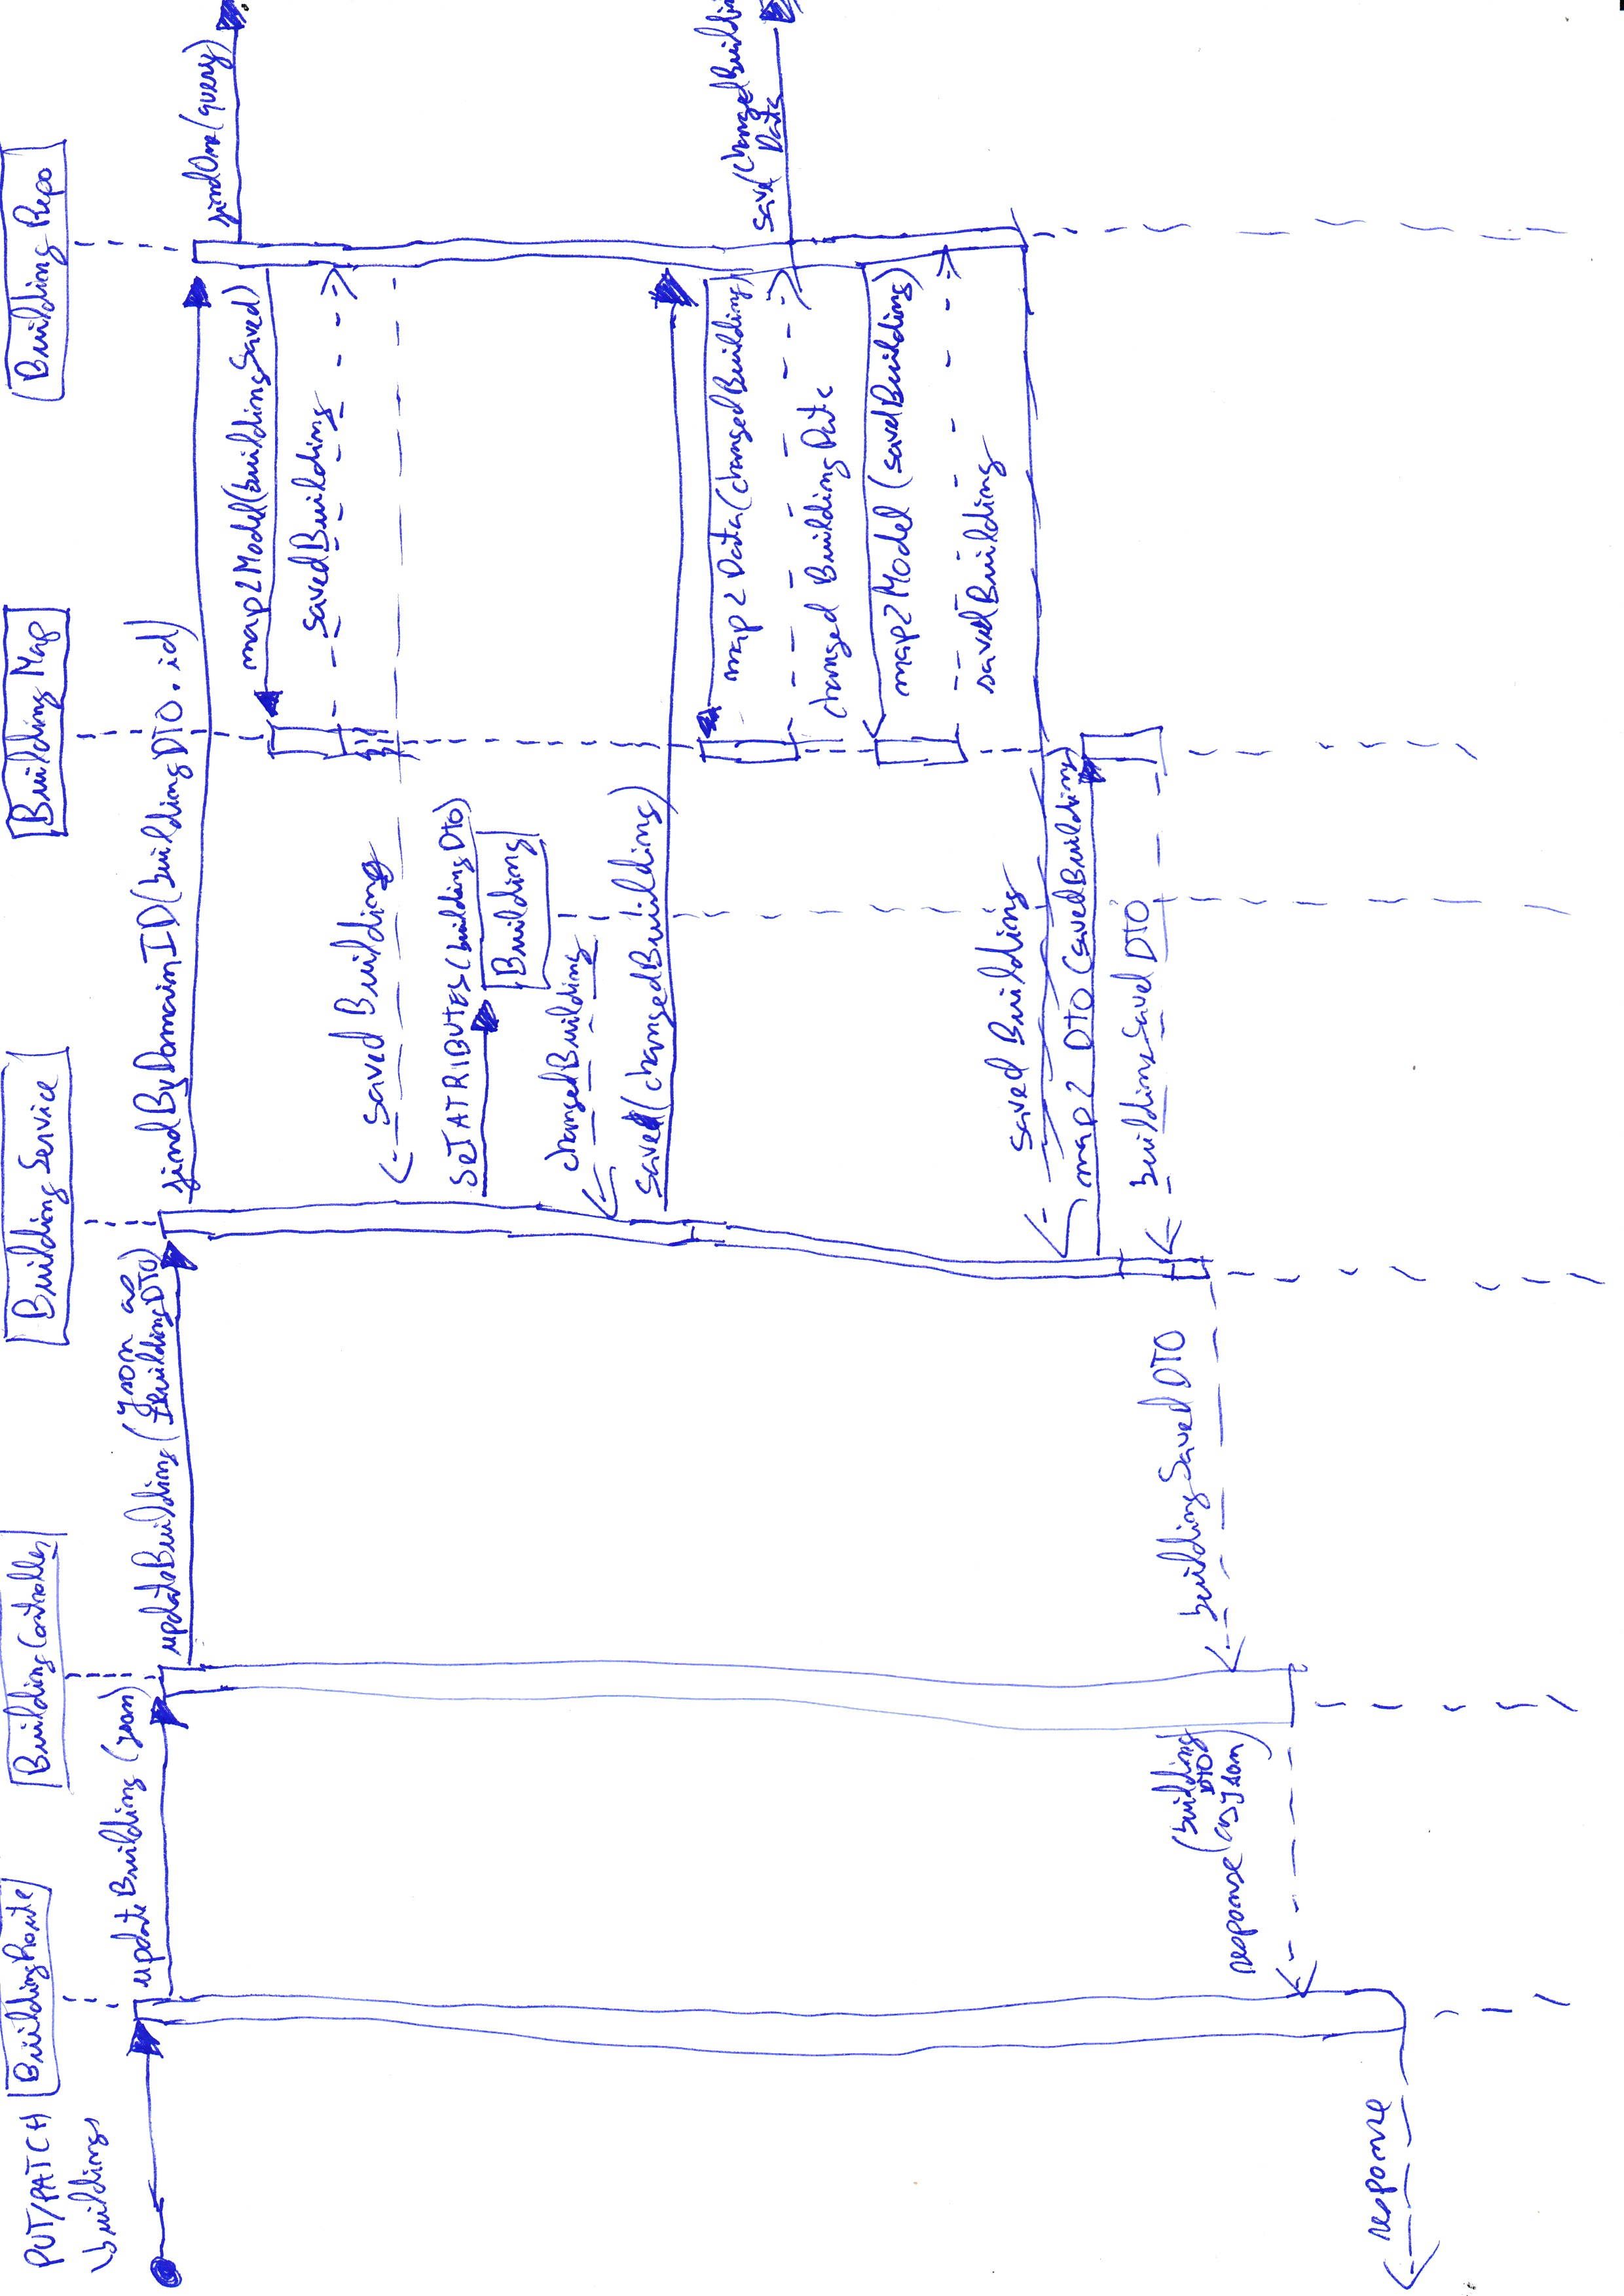 PUT/PATCH
\buildings
BuildingRoute
BuildingController
Building Service
Building Map
Building Repo
updateBuilding (json)
updateBuilding (json as
IBuildingDTO)
findByDomainID(buildingDTO.id)
findOne(query)
map2Model(buildingSaved)
savedBuilding
saved Building
SeTATRIBUTES(buildingDto)
Building
changedBuilding
save(changedBuilding)
map2Data(changedBuilding)
save(changedBuildin
Data
changed BuildingData
map2Model (savedBuilding)
savedBuilding
saved Building
map2 DTO (savedBuilding)
buildingSaved DTO
buildingSaved DTO
response (building
DTO
as json)
response